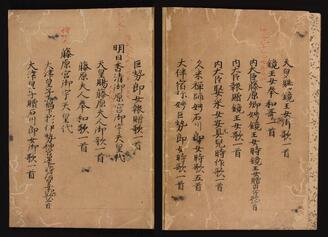 天皇賜鏡王女御歌一首
鏡王女奉和歌一首
内大臣藤原卿娉鏡王女時鏡王女贈歌一首
内大臣報贈鏡王女歌一首
内大臣娶采女安見児時作歌一首
久米禅師娉石川郎女時歌五首
大伴宿祢娉巨勢郎女時歌一首
巨勢郎女報贈歌一首
明日香清御原宮御宇天皇代
天皇賜藤原夫人御歌一首
藤原夫人奉和歌一首
藤原宮御宇天皇代
大津皇子贈石川郎女御歌一首